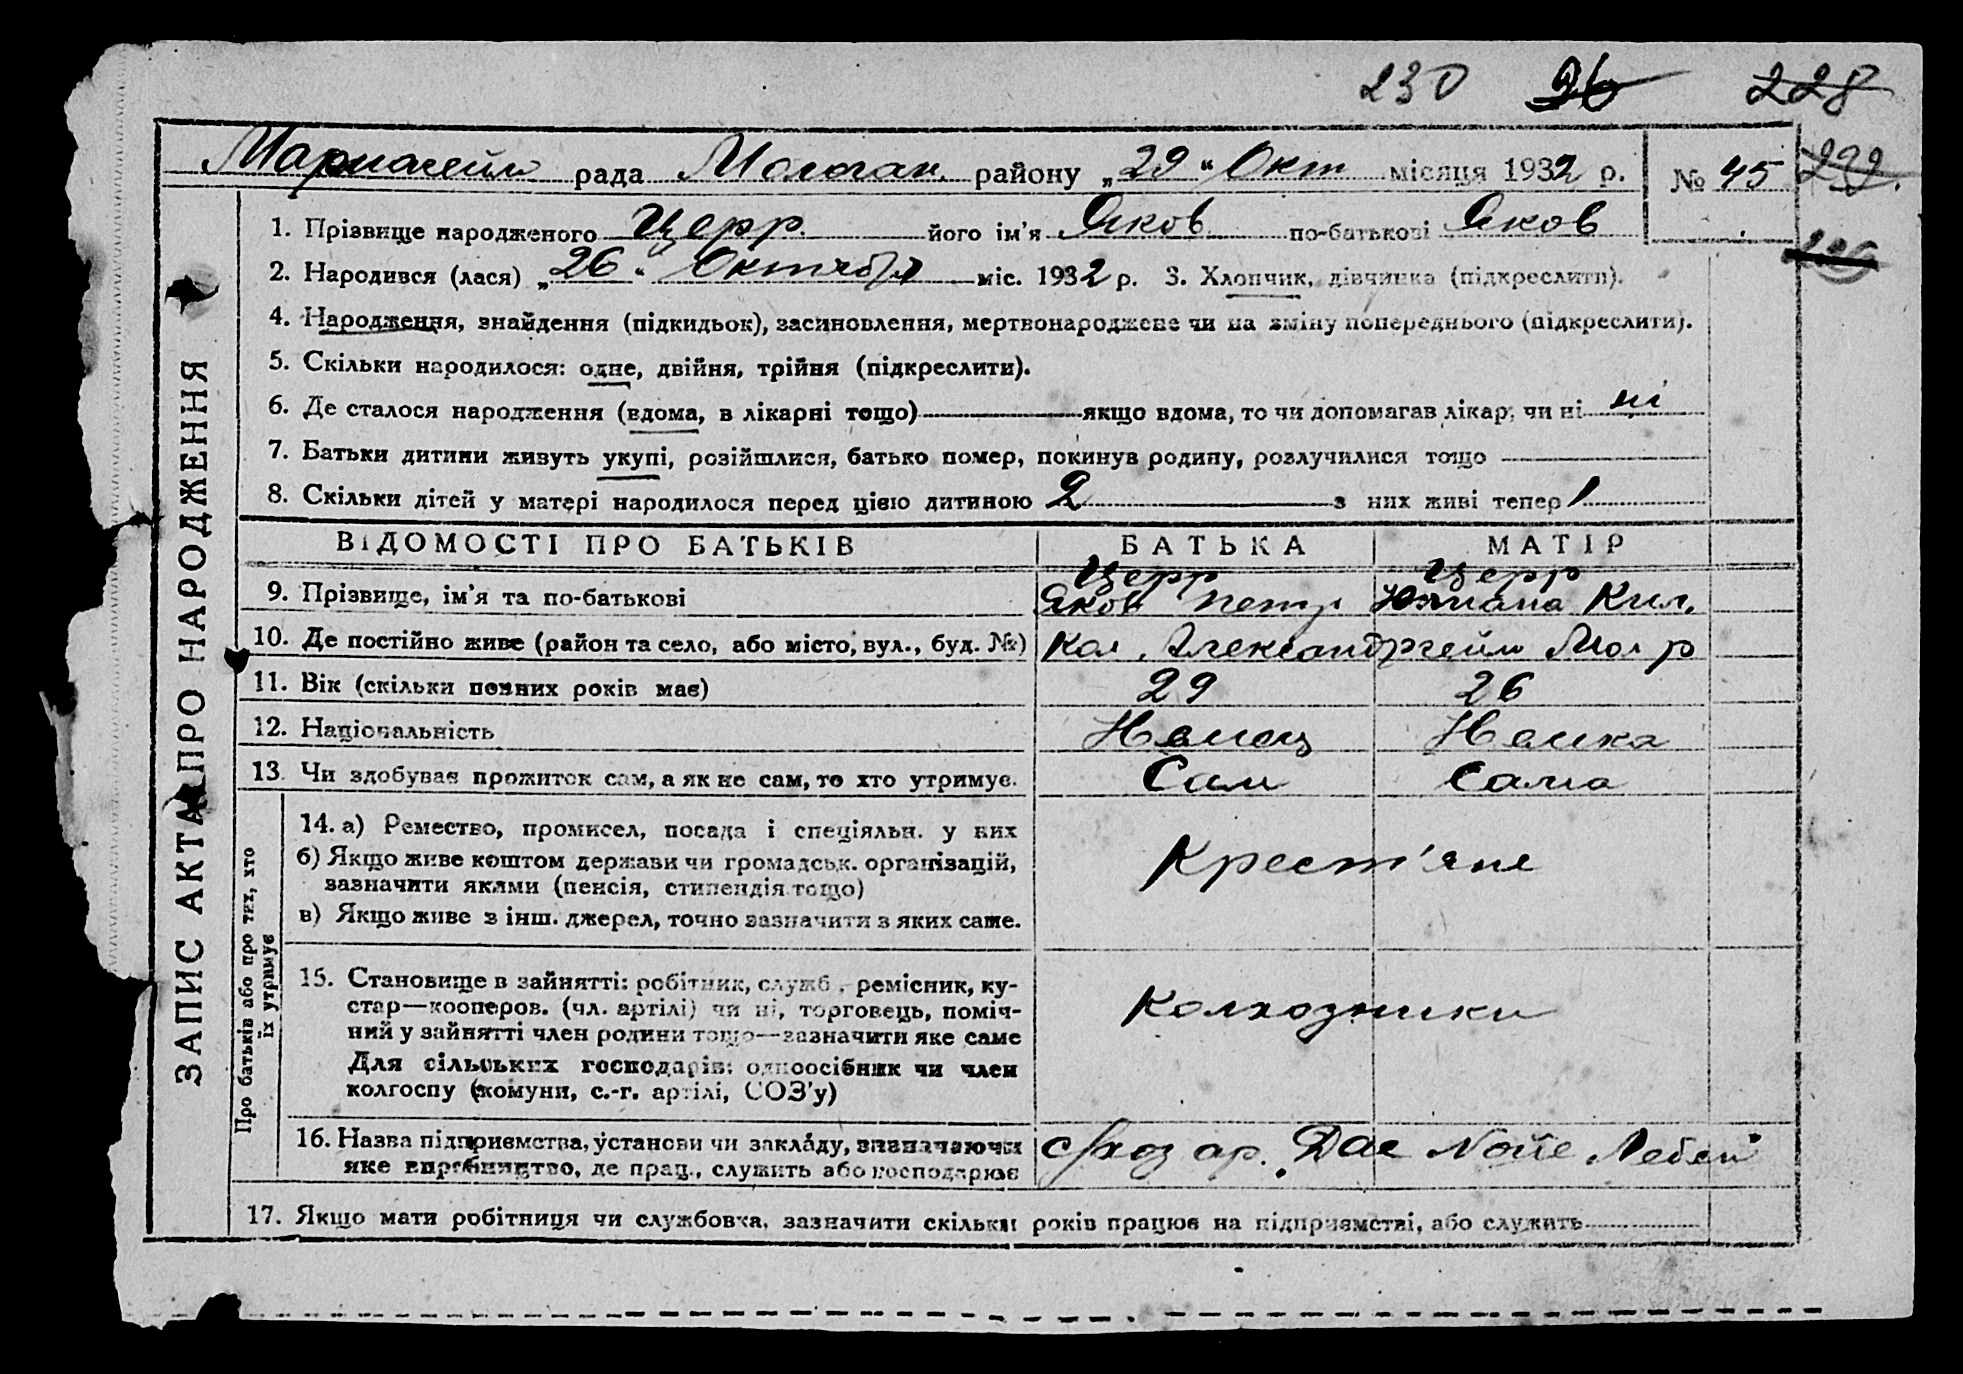 230 96 228
Мариагейм рада Молочан. району „29“ Окт місяця 1932 р. № 45 292.
1. Прізвище народженого Церр. його ім'я Яков по-батькові Яков
2. Народився (лася) „26“ Октября міс. 1932 р. 3. Хлопчик, дівчинка (підкреслити).
4. Народження, знайдення (підкидьок), засиновлення, мертвонароджене чи на зміну попереднього (підкреслити).
5. Скільки народилося: одне, двійня, трійня (підкреслити).
6. Де сталося народження (вдома, в лікарні тощо) якщо вдома, то чи допомагав лікар, чи ні ні
7. Батьки дитини живуть укупі, розійшлися, батько помер, покинув родину, розлучилися тощо
8. Скільки дітей у матері народилося перед цією дитиною 2 з них живі тепер 1
ВІДОМОСТІ ПРО БАТЬКІВ БАТЬКА МАТІР
Церр Церр
9. Прізвище, ім'я та по-батькові Яков Петр Юлиана Кил.
10. Де постійно живе (район та село, або місто, вул., буд. №) Кол. Александргейм Мол р
11. Вік (скільки повних років має) 29 26
12. Національність Немец Немка
13. Чи здобуває прожиток сам, а як не сам, то хто утримує. Сам Сама
14. а) Ремество, промисел, посада і спеціяльн. у них
б) Якщо живе коштом держави чи громадськ. організацій,
зазначити якими (пенсія, стипендія тощо)
Крест'яне
в) Якщо живе з інш. джерел, точно зазначити з яких саме.
15. Становище в зайнятті: робітник, служб., ремісник, ку-
стар—кооперов. (чл. артілі) чи ні, торговець, поміч-
ний у зайнятті член родини тощо—зазначити яке саме
Колхозники
Для сільських господарів: одноосібник чи член
колгоспу (комуни, с.-г. артілі, СОЗ'у)
16. Назва підприємства, установи чи закладу, визначаючи
яке виробництво, де прац., служить або господарює
с/хоз ар. „Дас Нойе Лебен"
17. Якщо мати робітниця чи службовка, зазначити скільки років працює на підприємстві, або служить
ЗАПИС АКТА ПРО НАРОДЖЕННЯ
Про батьків або про тих, хто
їх утримує